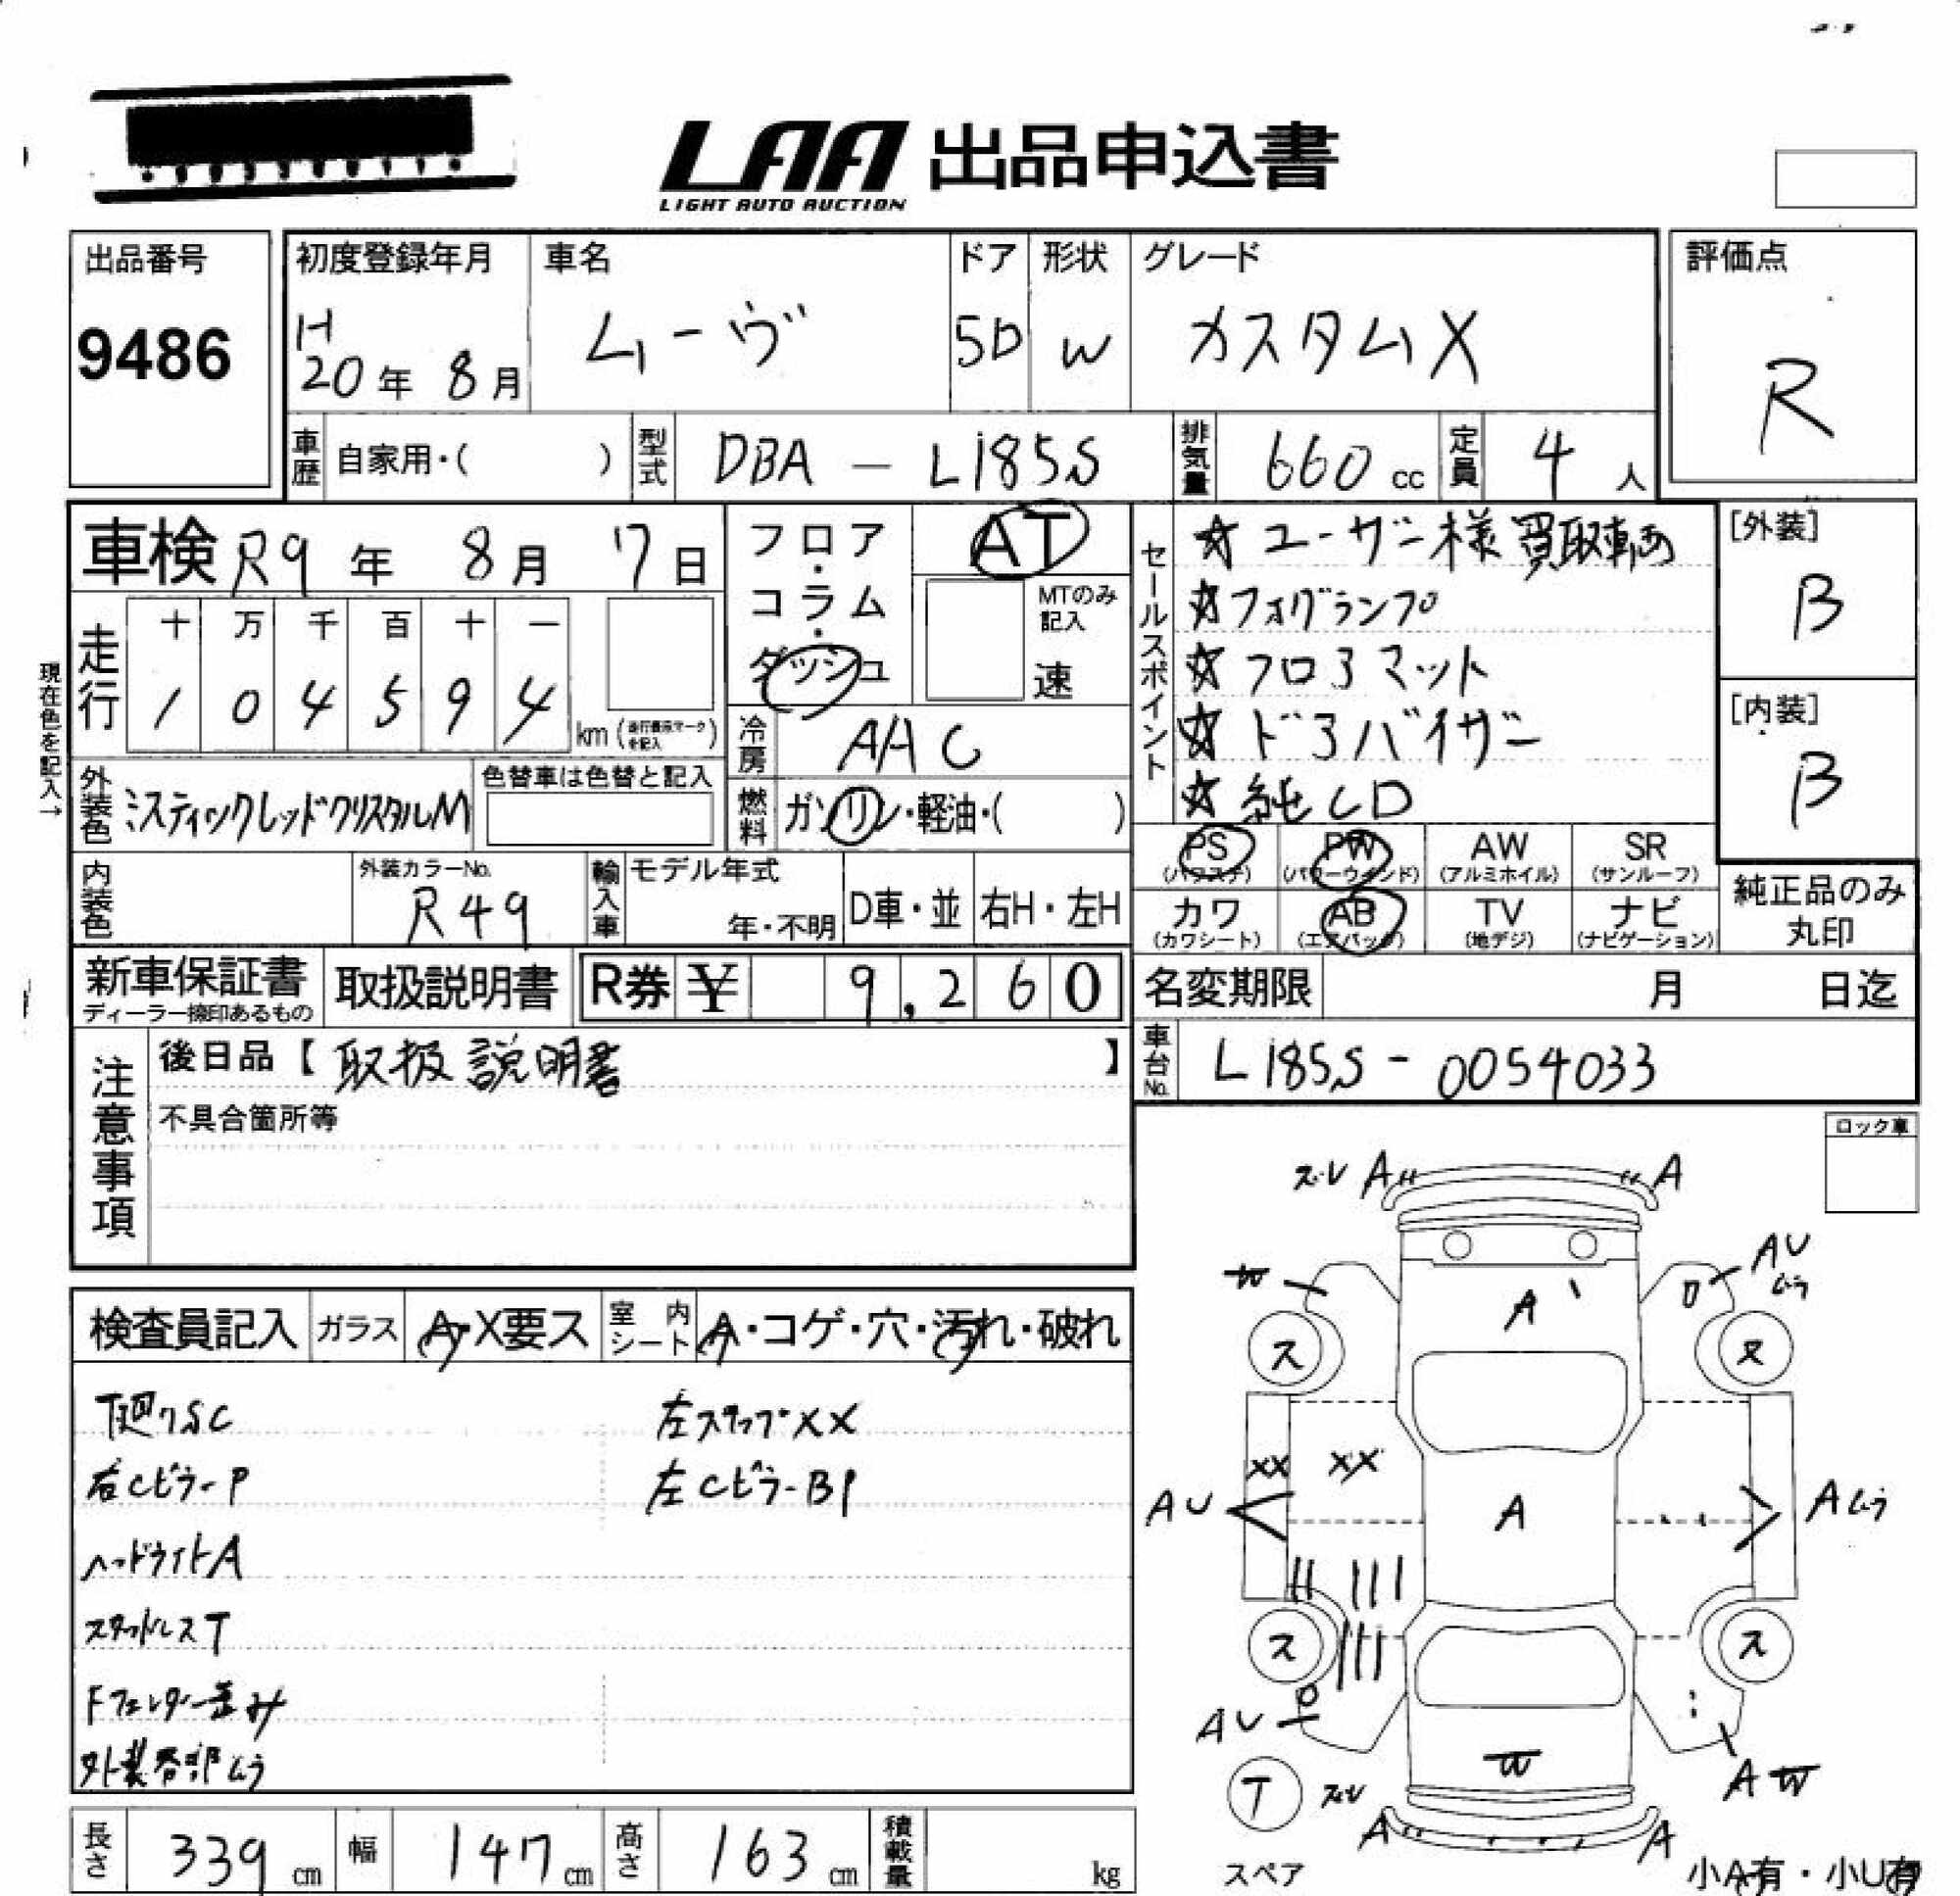 LAA 出品申込書
LIGHT AUTO AUCTION
出品番号
9486
初度登録年月
H
20年 8月
車名
ムーヴ
ドア
5D
形状
W
グレード
カスタムX
評価点
R
車歴 自家用・( )
型式 DBA - L185S
排気量 660 cc
定員 4 人
車検 R9年 8月 7日
フロア・コラム・ダッシュ
AT
MTのみ記入
速
セールスポイント
☆ユーザー様買取車両
☆フォグランプ
☆フロアマット
☆ドアバイザー
☆純CD
[外装]
B
[内装]
B
現在色を記入→
走行
十 万 千 百 十 一
1 0 4 5 9 4 km
冷房 AAC
外装色 ミスティックレッドクリスタルM
色替車は色替と記入
燃料 ガソリン・軽油・( )
PS
(パワステ)
PW
(パワーウインド)
AW
(アルミホイル)
SR
(サンルーフ)
カワ
(カワシート)
AB
(エアバック)
TV
(地デジ)
ナビ
(ナビゲーション)
純正品のみ
丸印
内装色
外装カラーNo.
R49
輸入車
モデル年式
年・不明
D車・並
右H・左H
新車保証書
ディーラー捺印あるもの
取扱説明書
R券 ¥ 9,260
名変期限 月 日迄
車台No. L185S-0054033
注意事項
後日品【 取扱説明書 】
不具合箇所等
ロック車
検査員記入
ガラス A・X要ス
室内シート A・コゲ・穴・汚れ・破れ
下廻りSC
左ステップXX
右CピラーP
左CピラーBP
ヘッドライトA
スタッドレスT
Fフェンダー歪み
外装各部ムラ
長さ 339 cm
幅 147 cm
高さ 163 cm
積載量 kg
ズレ A A
W
AU
ムラ
A
ス ス
XX XX
AU
A
Aムラ
ス ス
AU
W
AW
T ズレ
A A
スペア
小A有・小U有